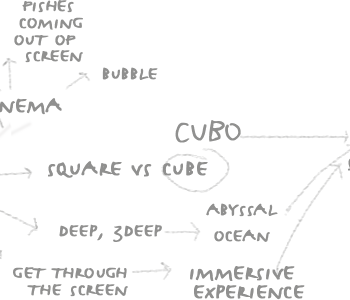 PISHES
COMING
OUT OP
SCREEN
BUBBLE
NEMA
CUBO
SQUARE VS CUBE
ABYSSAL
DEEP, 3DEEP
OCEAN
GET THROUGH
THE SCREEN
IMMERSIVE
EXPERIENCE